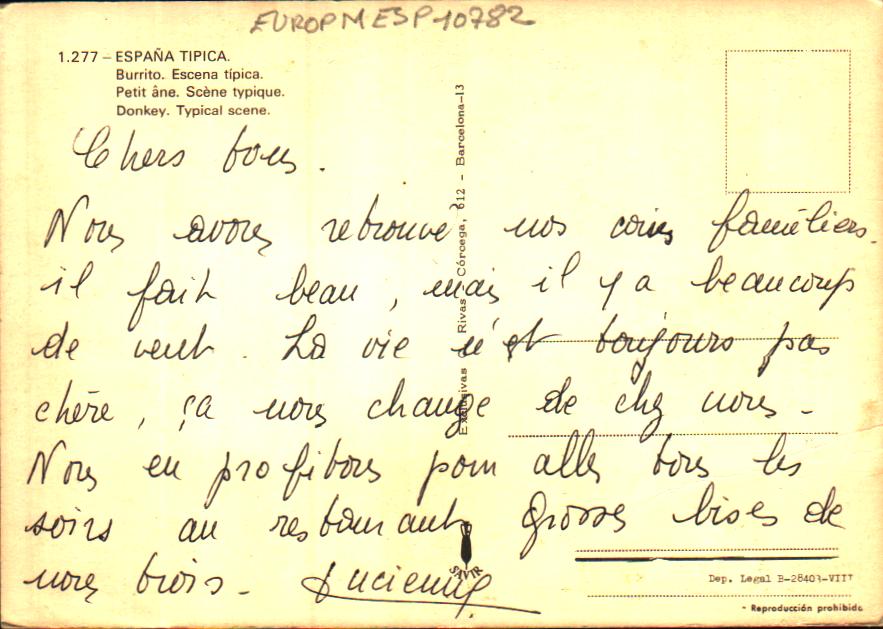 EUROPMESP10782
1.277 – ESPAÑA TIPICA.
Burrito. Escena típica.
Petit âne. Scène typique.
Donkey. Typical scene.
Chers tous.
Nous avons retrouvé nos coins familiers.
il fait beau, mais il y a beaucoup
de vent. La vie n'est toujours pas
chère, ça nous change de chez nous.
Nous en profitons pour aller tous les
soirs au restaurant. Grosses bises de
nous trois. Lucienne
Exclusivas Rivas Córcega, 612 - Barcelona-13
SAVIR
Dep. Legal B-28403-VIII
- Reproducción prohibida